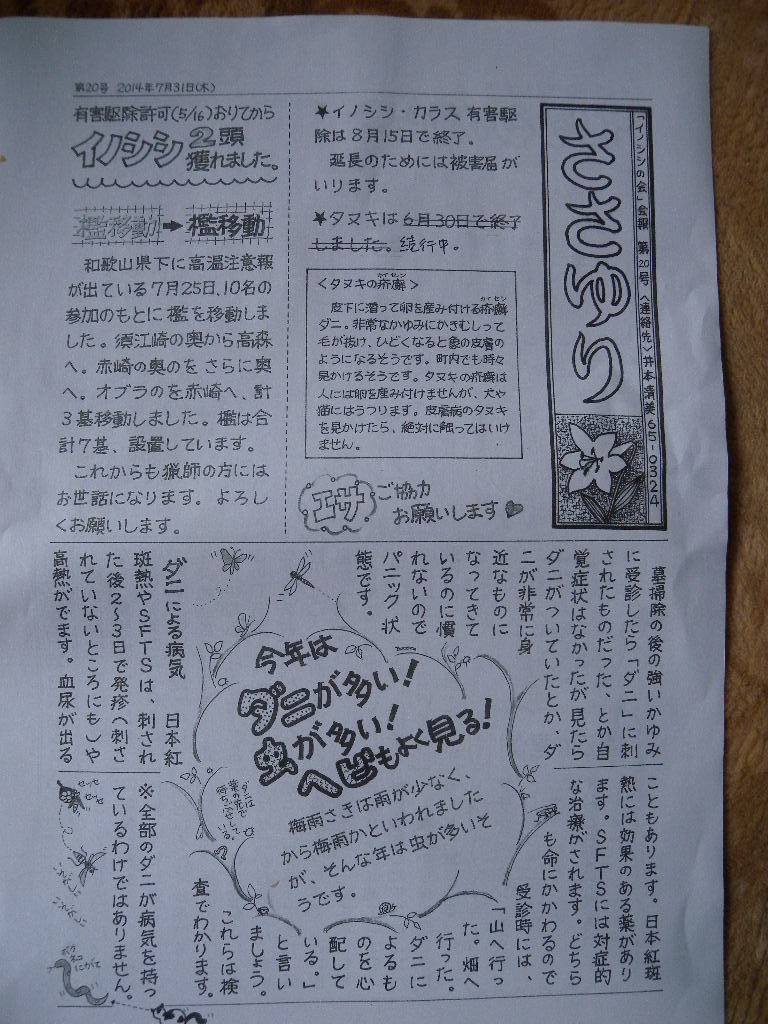 第20号 2014年7月31日(木)
「イノシシの会」会報 第20号 <連絡先> 井本清美 65-0324
ささゆり
★イノシシ・カラス 有害駆
除は8月15日で終了。
延長のためには被害届が
いります。
★タヌキは6月30日で終了
しました。続行中。
<タヌキの疥癬>
カイセン
皮下に潜って卵を産み付ける疥癬
カイセン
ダニ。非常なかゆみにかきむしって
毛が抜け、ひどくなると象の皮膚の
ようになるそうです。町内でも時々
見かけるそうです。タヌキの疥癬は
人には卵を産み付けませんが、犬や
猫にはうつります。皮膚病のタヌキ
を見かけたら、絶対に触ってはいけ
ません。
エサ ご協力
お願いします
有害駆除許可(5/16)おりてから
イノシシ 2頭
獲れました。
檻移動→檻移動
和歌山県下に高温注意報
が出ている7月25日、10名の
参加のもとに檻を移動しま
した。須江崎の奥から高森
へ。赤崎の奥のを さらに奥
へ。オブラのを赤崎へ、計
3基移動しました。檻は合
計7基、設置しています。
これからも猟師の方には
お世話になります。よろし
くお願いします。
墓掃除の後の強いかゆみ
に受診したら「ダニ」に刺
されたものだった、とか自
覚症状はなかったが見たら
ダニがついていたとか、ダ
ニが非常に身
近なものに
なってきて
いるのに慣
れないので
パニック状
態です。
今年は
ダニが多い!
虫が多い!
ヘビもよく見る!
梅雨さきは雨が少なく、
から梅雨かといわれました
が、そんな年は虫が多いそ
うです。
ダニは
葉の先で
待ちぶせしている。
ダニによる病気 日本紅
斑熱やSFTSは、刺され
た後2〜3日で発疹へ刺さ
れていないところにも)や
高熱がでます。血尿が出る
こともあります。日本紅斑
熱には効果のある薬があり
ます。SFTSには対症的
な治療がされます。どちら
も命にかかわるので
受診時には、
「山へ行っ
た。畑へ
行った。
ダニに
よるも
のを心
配して
いる。」
と言い
ましょう。
これらは検
査でわかります。
※全部のダニが病気を持っ
ているわけではありません。
セッセ
セッセ
ボク
ネコ
にがて